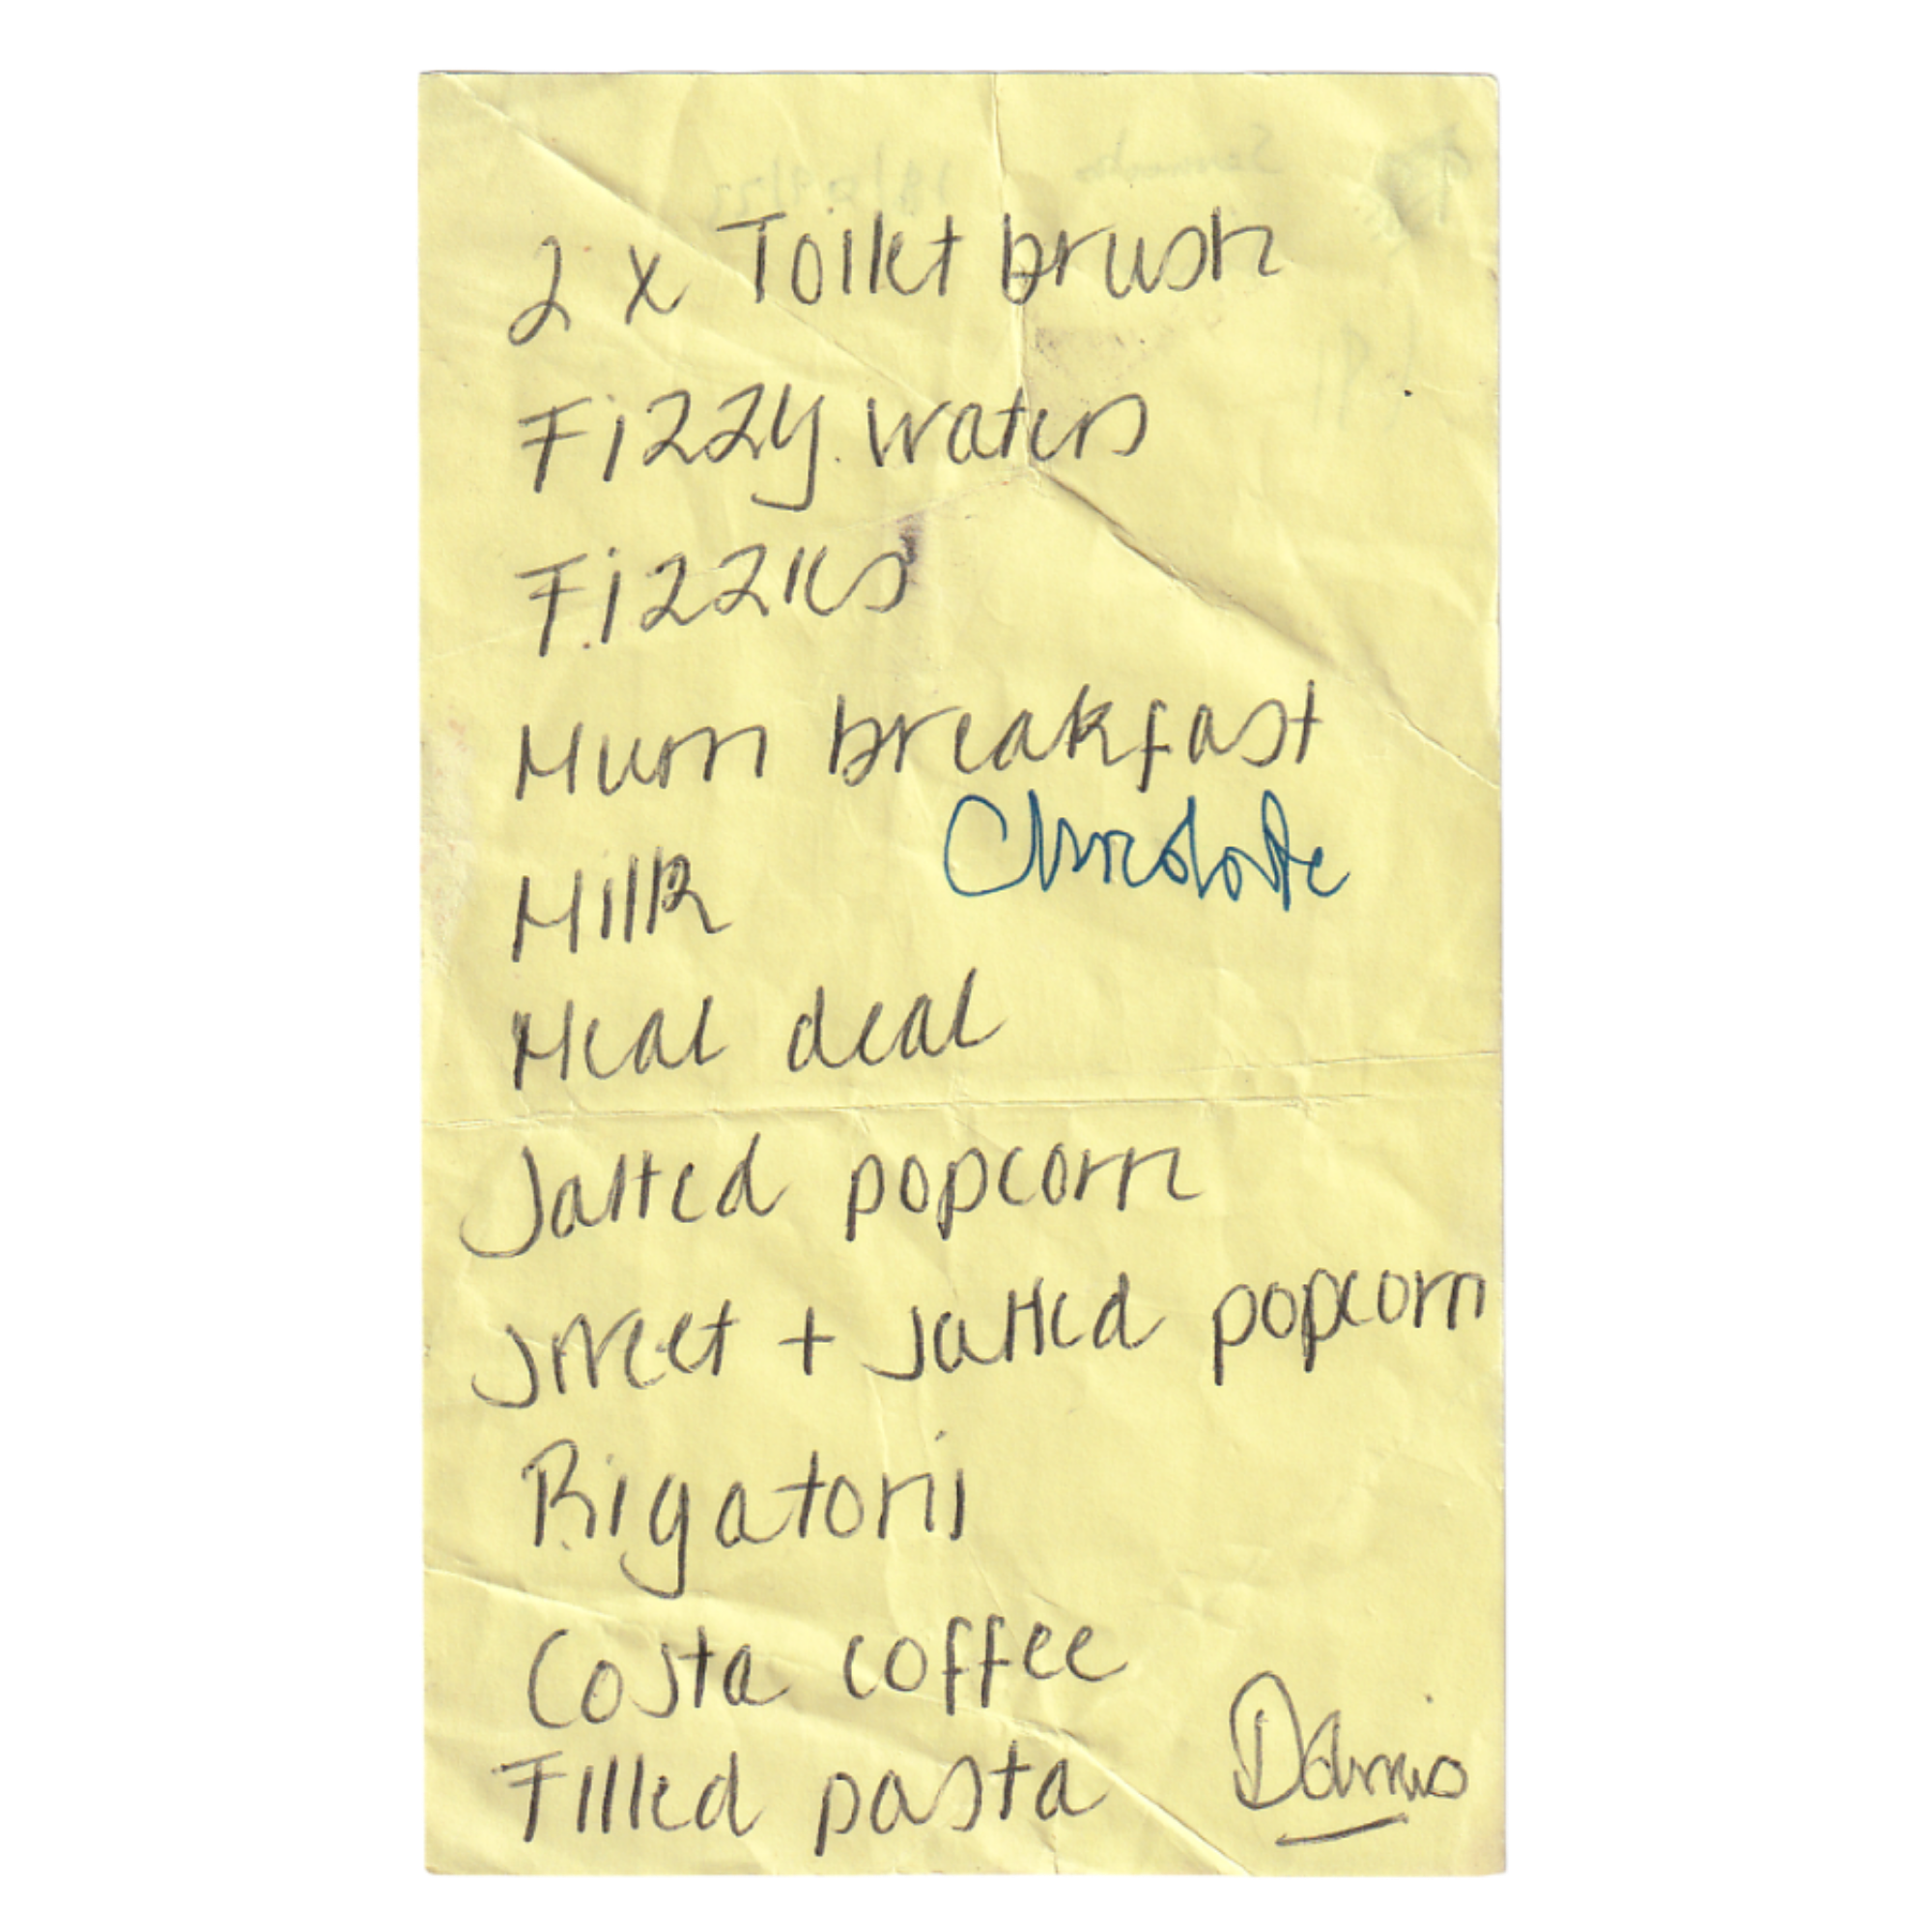 2 x Toilet brush
Fizzy waters
Fizzies
Mum breakfast
Chocolate
Milk
Meal deal
Salted popcorn
Sweet + salted popcorn
Rigatoni
Costa coffee
Filled pasta